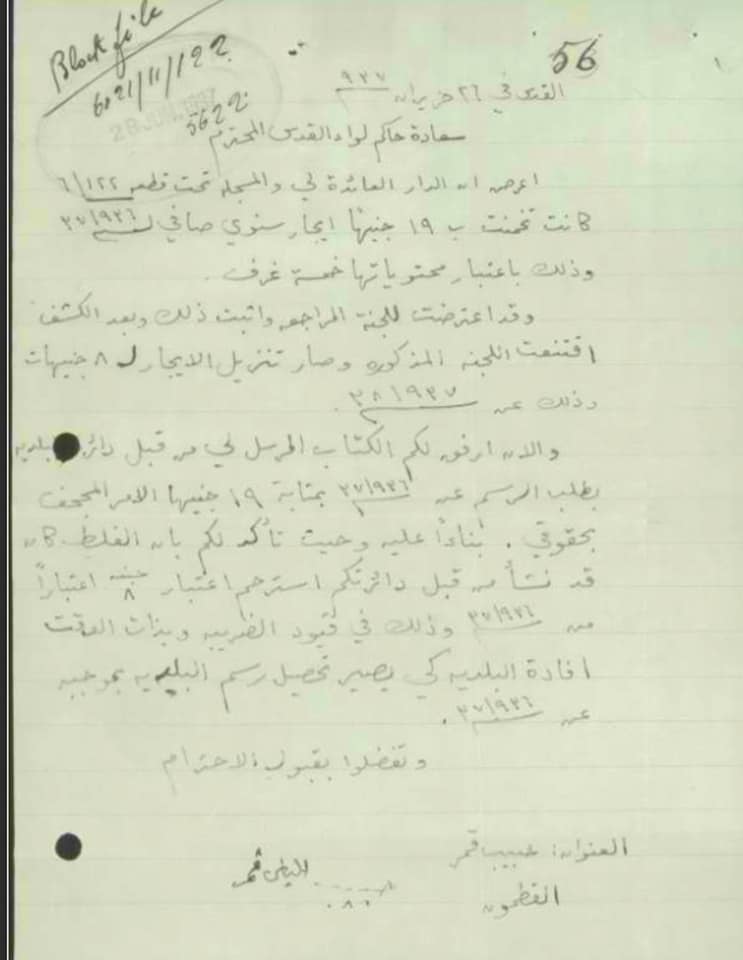 Block file
6021/11/122
56
28 JUN 1937
5622
القدس في ٢٦ حزيران ٩٣٧
سعادة حاكم لواء القدس المحترم
اعرض ان الدار العائدة لي والمسجله تحت قطعه ٦/١٢٢
كانت تخمنت ب ١٩ جنيهًا ايجار سنوي صافي لسنة ٣٧/٩٣٦
وذلك باعتبار محتوياتها خمسة غرف.
وقد اعترضت للجنة المراجعه واثبت ذلك وبعد الكشف
اقتنعت اللجنه المذكوره وصار تنزيل الايجار لـ ٨ جنيهات
وذلك عن سنة ٣٨/٩٣٧.
والان ارفق لكم الكتاب المرسل لي من قبل دائرة البلديه
بطلب الرسم عن سنة ٣٧/٩٣٦ بمثابة ١٩ جنيها الامر المجحف
بحقوقي. بناءاً عليه وحيث تأكد لكم بان الغلط كان
قد نشأ من قبل دائرتكم استرحم اعتبار ٨ جنيه اعتباراً
من سنة ٣٧/٩٣٦ وذلك في قيود الضريبه وبذات الوقت
افادة البلديه كي يصير تحصيل رسم البلديه بموجبه
عن سنة ٣٧/٩٣٦.
وتفضلوا بقبول الاحترام
العنوان: حبيب قمر
القطمون